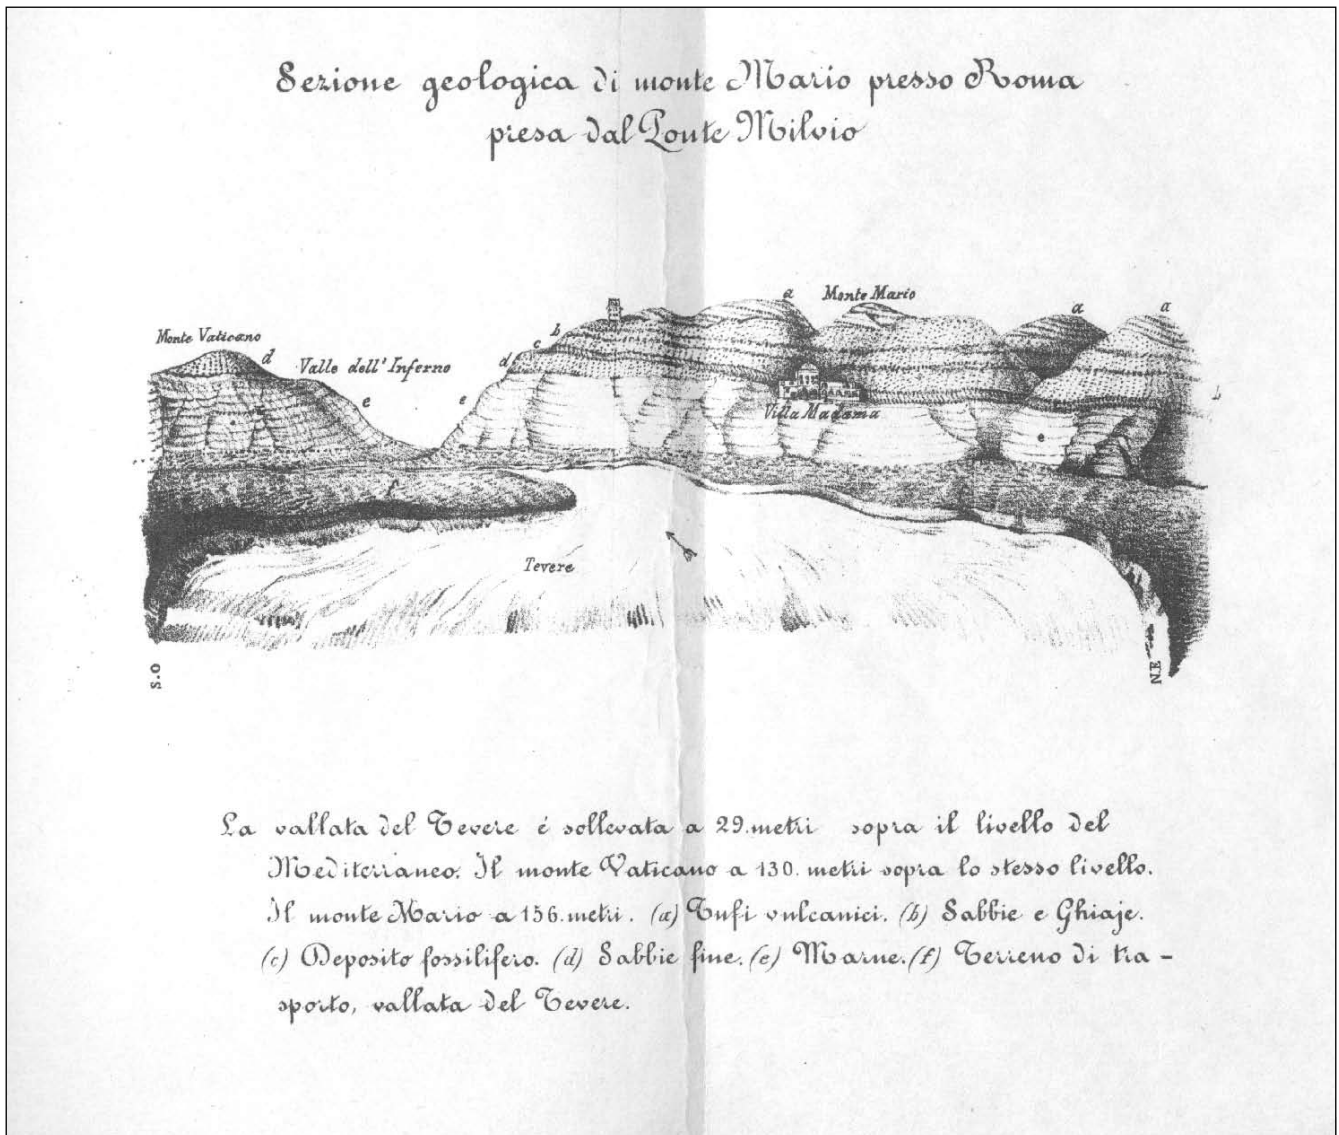 Sezione geologica di monte Mario presso Roma
presa dal Ponte Milvio
a
Monte Mario
a
a
Monte Vaticano
d
Valle dell' Inferno
b
c
d
e
e
Villa Madama
b
e
e
f
Tevere
S.O
N.E
La vallata del Tevere é sollevata a 29. metri sopra il livello del
Mediterraneo. Il monte Vaticano a 130. metri sopra lo stesso livello.
Il monte Mario a 156. metri. (a) Tufi vulcanici. (b) Sabbie e Ghiaje.
(c) Deposito fossilifero. (d) Sabbie fine. (e) Marne. (f) Terreno di tra-
sporto, vallata del Tevere.